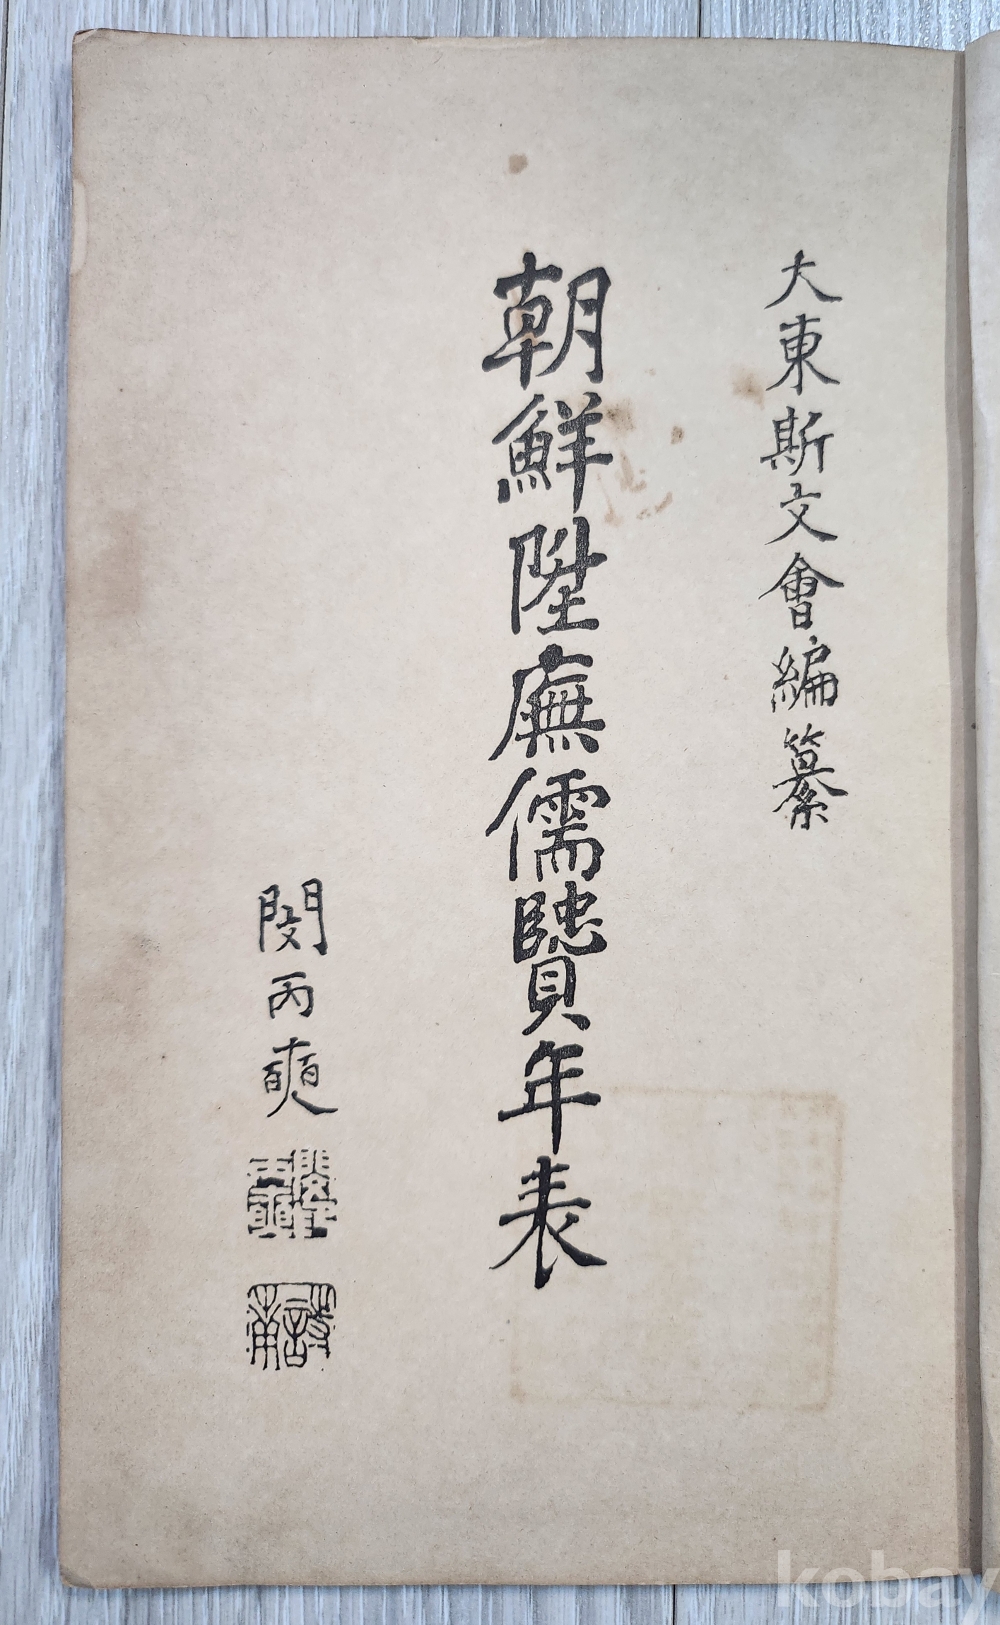 大東斯文會編纂
朝鮮陞廡儒賢年表
閔丙奭
kobay